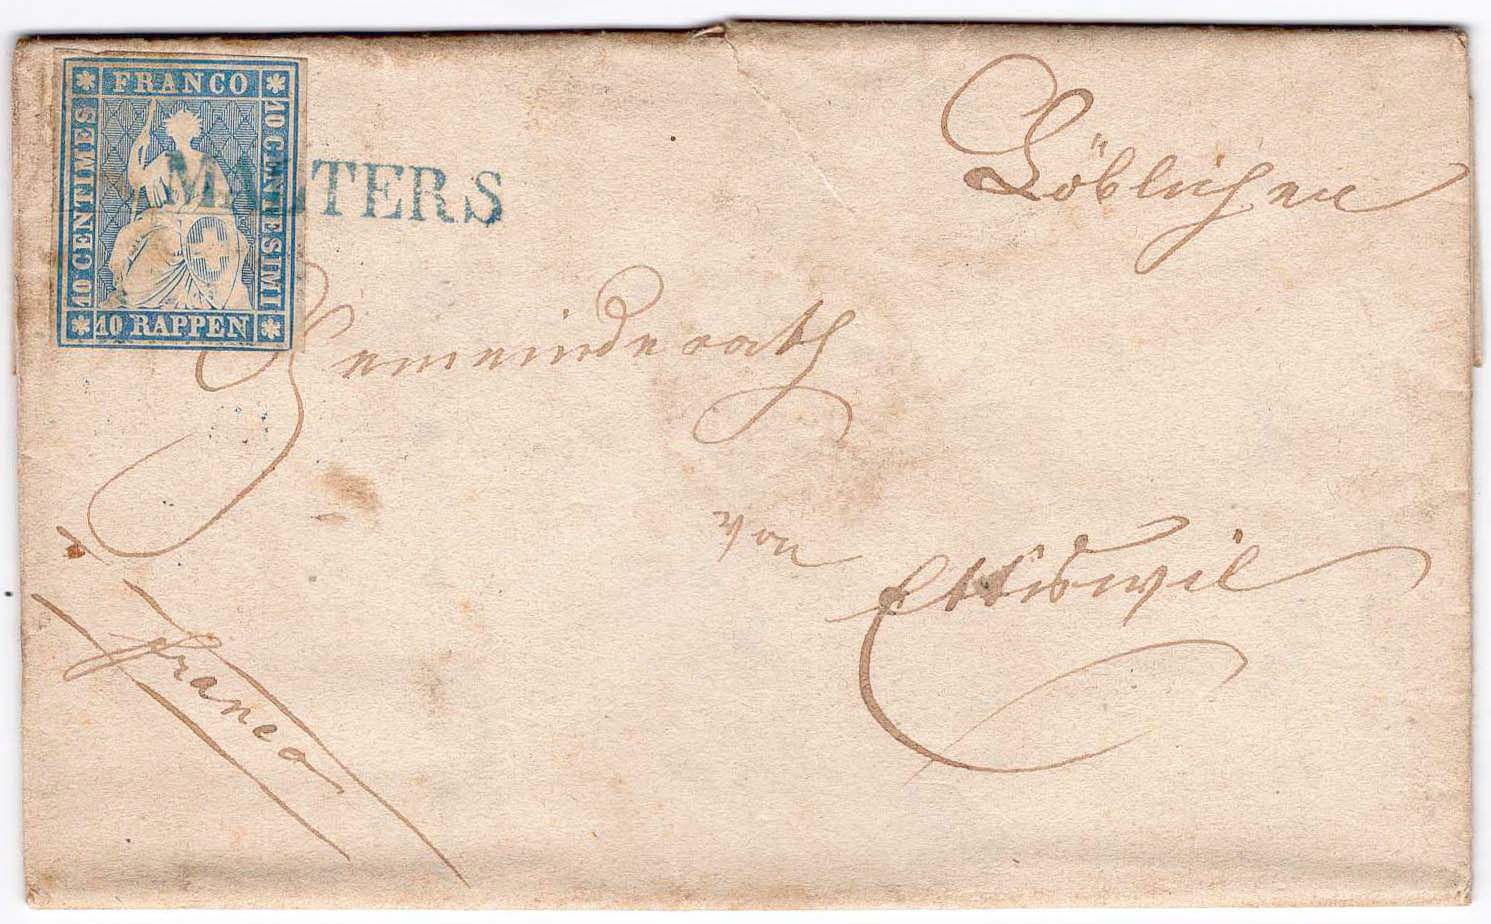 FRANCO
10 CENTIMES
10 CENTESIMI
10 RAPPEN
MALTERS
Löblichen
Gemeinderath
von
Ettiswil
franco